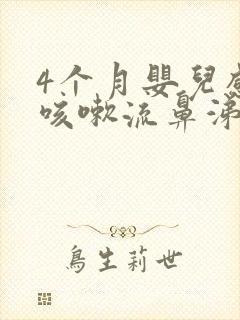 4个月嬰兒
咳嗽流鼻涕
鳥生莉世